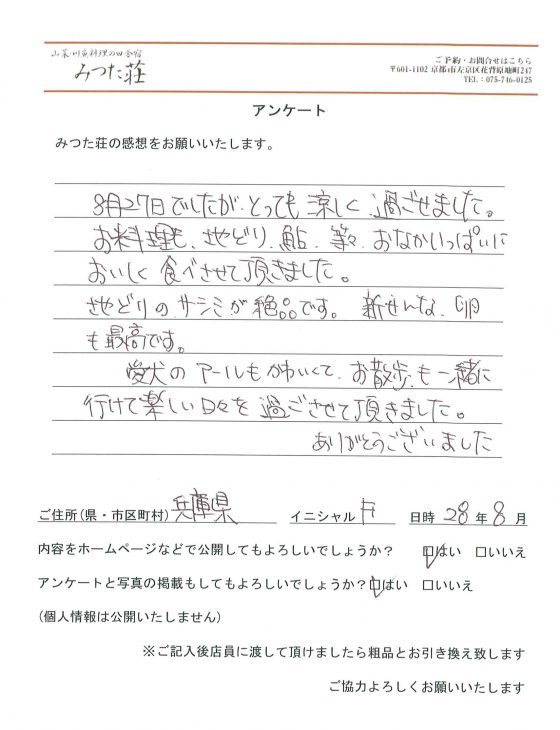 山菜・川魚料理の田舎宿
みつた荘
ご予約・お問合せはこちら
〒601-1102 京都市左京区花背原地町247
TEL：075-746-0125
アンケート
みつた荘の感想をお願いいたします。
8月27日でしたが、とっても涼しく、過ごせました。
お料理も、地どり、鮎、等々、おなかいっぱいに
おいしく食べさせて頂きました。
地どりのサシミが絶品です。 新せんな、卵
も最高です。
愛犬のアールもかわいくて、お散歩も一緒に
行けて楽しい日々を過ごさせて頂きました。
ありがとうございました
ご住所(県・市区町村) 兵庫県 イニシャル 日時 28 年 8 月
内容をホームページなどで公開してもよろしいでしょうか？ ☑はい □いいえ
アンケートと写真の掲載もしてもよろしいでしょうか？☑はい □いいえ
(個人情報は公開いたしません)
※ご記入後店員に渡して頂けましたら粗品とお引き換え致します
ご協力よろしくお願いいたします